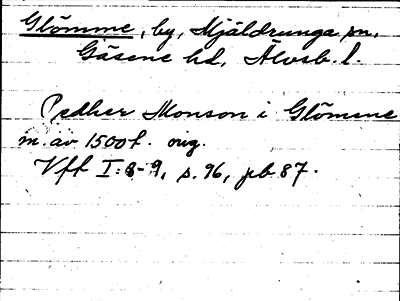 Glömme, by, Mjäldrunga sn,
Gäsene hd, Älvsb. l.
Pedher Monson i Glömene
m. av 1500t. orig.
Vft I: 8-9, s. 96, jb 87.